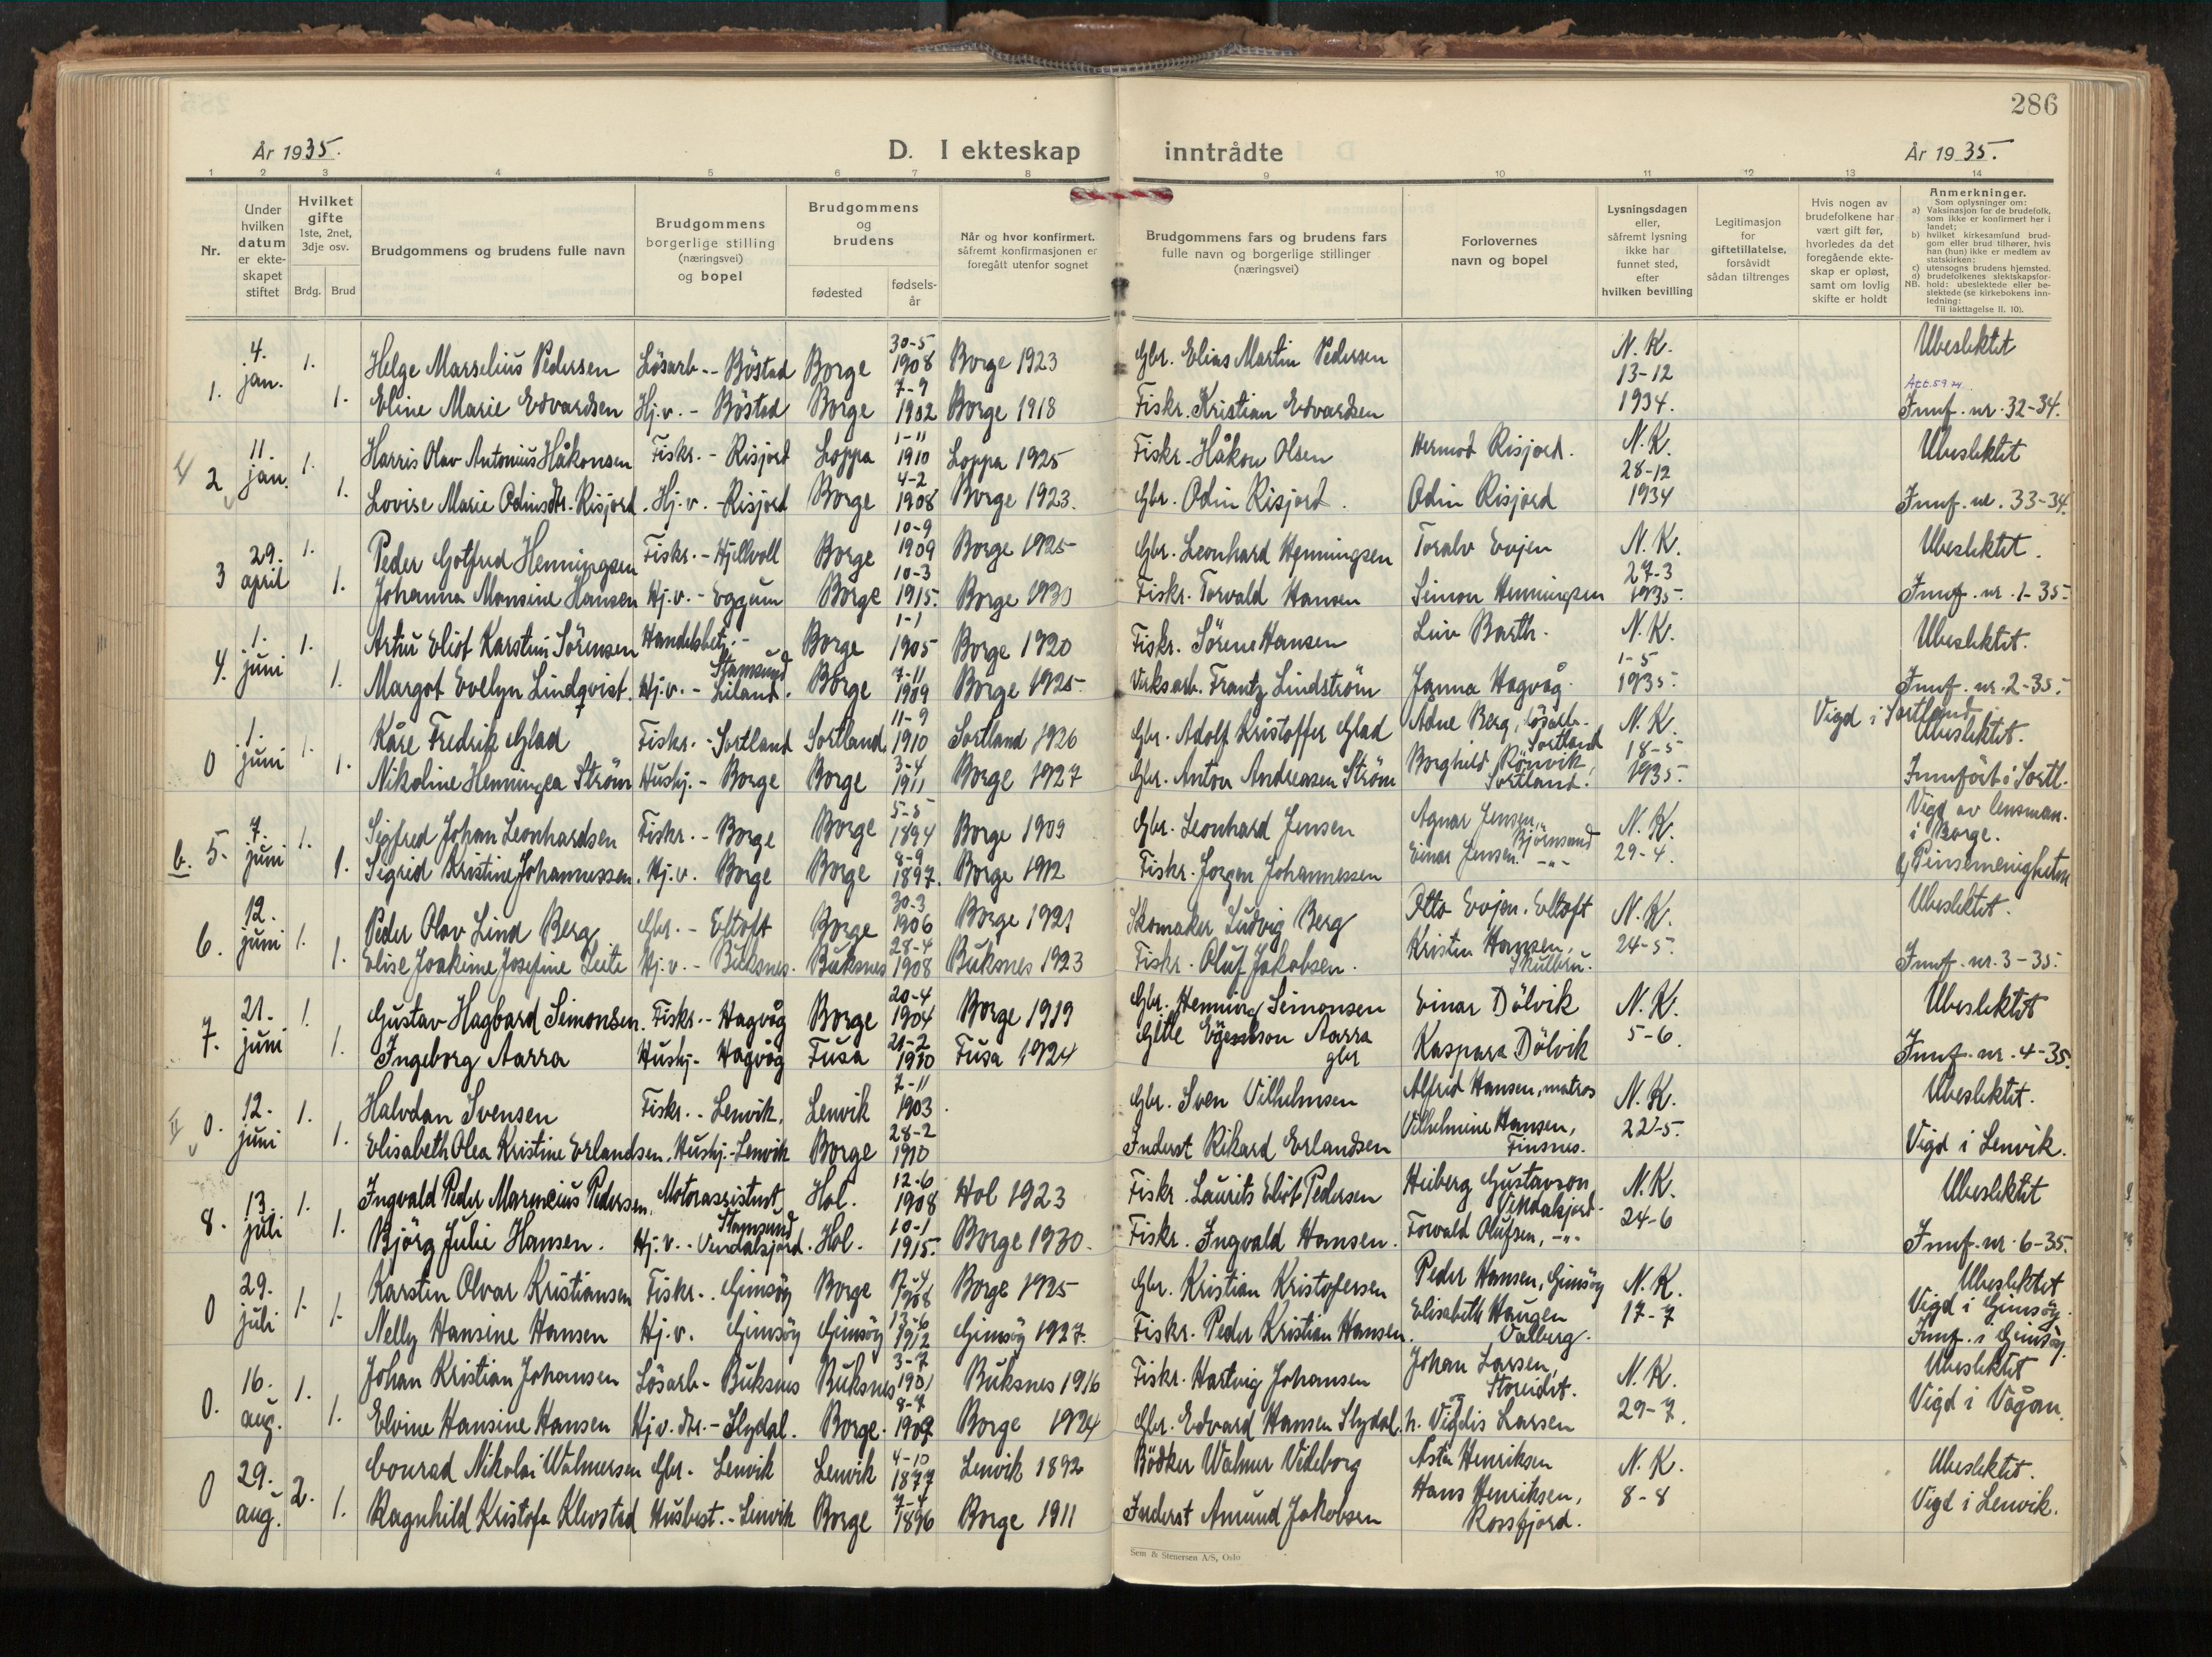 286
År 1935.
D. I ekteskap inntrådte
År 1935.
1 2 3 4 5 6 7 8 9 10 11 12 13 14
Nr.
Under hvilken datum er ekteskapet stiftet
Hvilket gifte 1ste, 2net, 3dje osv.
Brdg. Brud
Brudgommens og brudens fulle navn
Brudgommens borgerlige stilling (næringsvei) og bopel
Brudgommens og brudens
fødested
fødsels-år
Når og hvor konfirmert. såfremt konfirmasjonen er foregått utenfor sognet
Brudgommens fars og brudens fars fulle navn og borgerlige stillinger (næringsvei)
Forlovernes navn og bopel
Lysningsdagen eller, såfremt lysning ikke har funnet sted, efter hvilken bevilling
Legitimasjon for giftetillatelse, forsåvidt sådan tiltrenges
Hvis nogen av brudefolkene har vært gift før, hvorledes da det foregående ekteskap er opløst, samt om lovlig skifte er holdt
Anmerkninger.
Som oplysninger om:
a) Vaksinasjon for de brudefolk, som ikke er konfirmert her i landet;
b) hvilket kirkesamfund brudgom eller brud tilhører, hvis han (hun) ikke er medlem av statskirken;
c) utensogns brudens hjemsted.
d) brudefolkenes slektskapsforhold: ubeslektede eller beslektede (se kirkebokens innledning:
NB.
Til iakttagelse II, 10).
1. 4. jan. 1. Helge Marselius Pedersen Lösarb. - Böstad Borge 30-5 1908 Borge 1923 Gbr. Elias Martin Pedersen N.K. 13-12 1934. Ubeslektet
1. Eline Marie Edvardsen Hj.v. - Böstad Borge 7-9 1902 Borge 1918 Fiskr. Kristian Edvardsen Innf. nr. 32-34.
2 11. jan. 1. Harris Olav Antonius Håkonsen Fiskr. - Risjord Loppa 1-11 1910 Loppa 1925 Fiskr. Håkon Olsen Hermod Risjord. N.K. 28-12 1934 Ubeslektet
1. Lovise Marie Odinsdtr. Risjord. Hj.v. - Risjord Borge 4-2 1908 Borge 1923. Gbr. Odin Risjord. Odin Risjord Innf. nr. 33-34.
3 29. april 1. Peder Gotfred Henningsen Fiskr. - Hjellvoll Borge 10-9 1909 Borge 1925 Gbr. Leonhard Henningsen Toralv Evjen N.K. 27-3 1935. Ubeslektet.
1. Johanna Mansine Hansen Hj.v. - Eggum Borge 10-3 1915. Borge 1930 Fiskr. Torvald Hansen Simon Henningsen Innf. nr. 1-35.
4. 1. juni 1. Eliot Karstein Sörensen Handelsbetj. - Stamsund Borge 1-1 1905 Borge 1920 Fiskr. Sörene Hansen Leiv Barth. N.K. 1-5 1935. Ubeslektet.
1. Margot Evelyn Lindqvist. Hj.v. - Liland. Borge 7-11 1909 Borge 1925. Virksarb. Frantz Lindström Janna Hagvåg. Innf. nr. 2-35.
0 1. juni 1. Kåre Fredrik Glad Fiskr. - Sortland Sortland 11-9 1910 Sortland 1926 Gbr. Adolf Kristoffer Glad Adne Berg, lösarb. Sortland N.K. 18-5 1935. Vigd i Sortland Ubeslektet.
1. Nikoline Henningea Ström Hushj. - Borge Borge 3-4 1911 Borge 1927 Gbr. Anton Andreasen Ström Borghild Rönvik, Sortland. Innfört i Sortl.
b. 5. 7. juni 1. Sigfred Johan Leonhardsen Fiskr. - Borge Borge 5-5 1894 Borge 1909 Gbr. Leonhard Jensen Agnar Jensen, Björnsand N.K. 29-4. Vigd av lensman. i Borge.
1. Sigrid Kristine Johannessen. Hj.v. Borge Borge 8-9 1897. Borge 1912 Fiskr. Jorgen Johannessen Einar Jensen. -"- b) Pinsemenigheten
6. 12. juni 1. Peder Olav Lind Berg Gbr. - Eltoft Borge 30-3 1906 Borge 1921 Skomaker Ludvig Berg Otto Evjen. Eltoft N.K. 24-5. Ubeslektet.
1. Elise Joakime Josefine Leite Hj.v. - Buksnes. Buksnes 28-4 1908 Buksnes 1923 Fiskr. Oluf Jakobsen. Kristen Hansen, Skulbru. Innf. nr. 3-35.
7. 21. juni 1. Gustav Hagbard Simonsen. Fiskr. - Hagvåg Borge 20-4 1904 Borge 1919 Gbr. Henning Simonsen Einar Dölvik N.K. 5-6. Ubeslektet
1. Ingeborg Aarra Hushj. - Hagvåg Fusa 21-2 1910 Fusa 1924 Aarra gbr Kaspara Dölvik Innf. nr. 4-35.
0. 12. juni 1. Halvdan Svensen Fiskr. - Lenvik. Lenvik 7-11 1903 Gbr. Sven Vilhelmsen Alfred Hansen, matros N.K. 22-5. Ubeslektet.
1. Elisabeth Olea Kristine Erlandsen. Hushj. - Lenvik Borge 28-2 1910 Inderst Rikard Erlandsen Vilhelmine Hansen, Finsnes. Vigd i Lenvik.
8. 13. juli 1. Ingvald Peder Pedersen, Motorassistent Stamsund Hol. 12-6 1908 Hol 1923 Fiskr. Laurits Eliot Pedersen Heiberg Gustavson, Vendalsjord. N.K. 24-6 Ubeslektet
1. Björg Julie Hansen. Hj.v. - Vendalsjord. Hol. 10-1 1915. Borge 1930. Fiskr. Ingvald Hansen. Torvald Olufsen, -"- Innf. nr. 6-35.
0 29. juli 1. Karsten Olvar Kristiansen Fiskr. - Gimsöy Borge 17-4 1908 Borge 1925 Gbr. Kristian Kristofersen Peder Hansen, Gimsöy N.K. 17-7 Ubeslektet Vigd i Gimsöy.
1. Nelly Hansine Hansen Hj.v. Gimsöy Gimsöy 13-6 1912 Gimsöy 1927. Fiskr. Peder Kristian Hansen. Elisabeth Haugen Valberg. Innf. i Gimsöy.
0. 16. aug. 1. Johan Kristian Johansen Lösarb. - Buksnes Buksnes 3-7 1901 Buksnes 1916 Fiskr. Hartvig Johansen Johan Larsen, Storeidet. N.K. 29-7. Ubeslektet Vigd i Vågan.
1. Elvine Hansine Hansen Hj.v. dtr. - Slydal. Borge. 1909 Borge 1924 Gbr. Edvard Hansen Slydal. og h. Vigdis Larsen
0 29. aug. 2. Conrad Nikolai Walmersen Gbr. Lenvik Lenvik 4-10 1877 Lenvik 1892 Bödker Walmer Videborg Asta Henriksen N.K. 8-8 Ubeslektet.
1. Ragnhild Kristofa Klevstad Husbest. - Lenvik Borge 7-4 1896 Borge 1911 Inderst Amund Jakobsen Hans Henriksen, Rossfjord. Vigd i Lenvik.
Sem & Stenersen A/S, Oslo